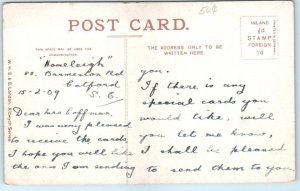 50¢
POST CARD.
THIS SPACE MAY BE USED FOR
COMMUNICATION.
THE ADDRESS ONLY TO BE
WRITTEN HERE.
INLAND
½d
STAMP
FOREIGN
1d
"Homeleigh"
88. Barmeston Rd
Catford
15-2-09 S.E.
Dear Mrs Coffman,
I was very pleased
to receive the cards
I hope you will like
the one I am sending
you.
If there is any
special cards you
would like, will
you let me know,
I shall be pleased
to send them to you